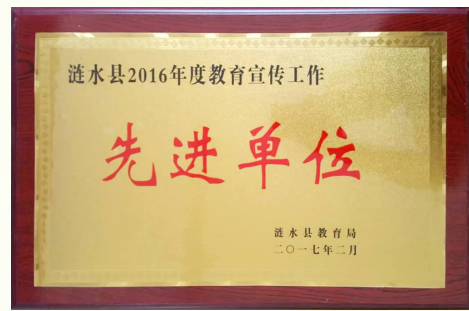 涟水县2016年度教育宣传工作
先进单位
涟水县教育局
二〇一七年二月